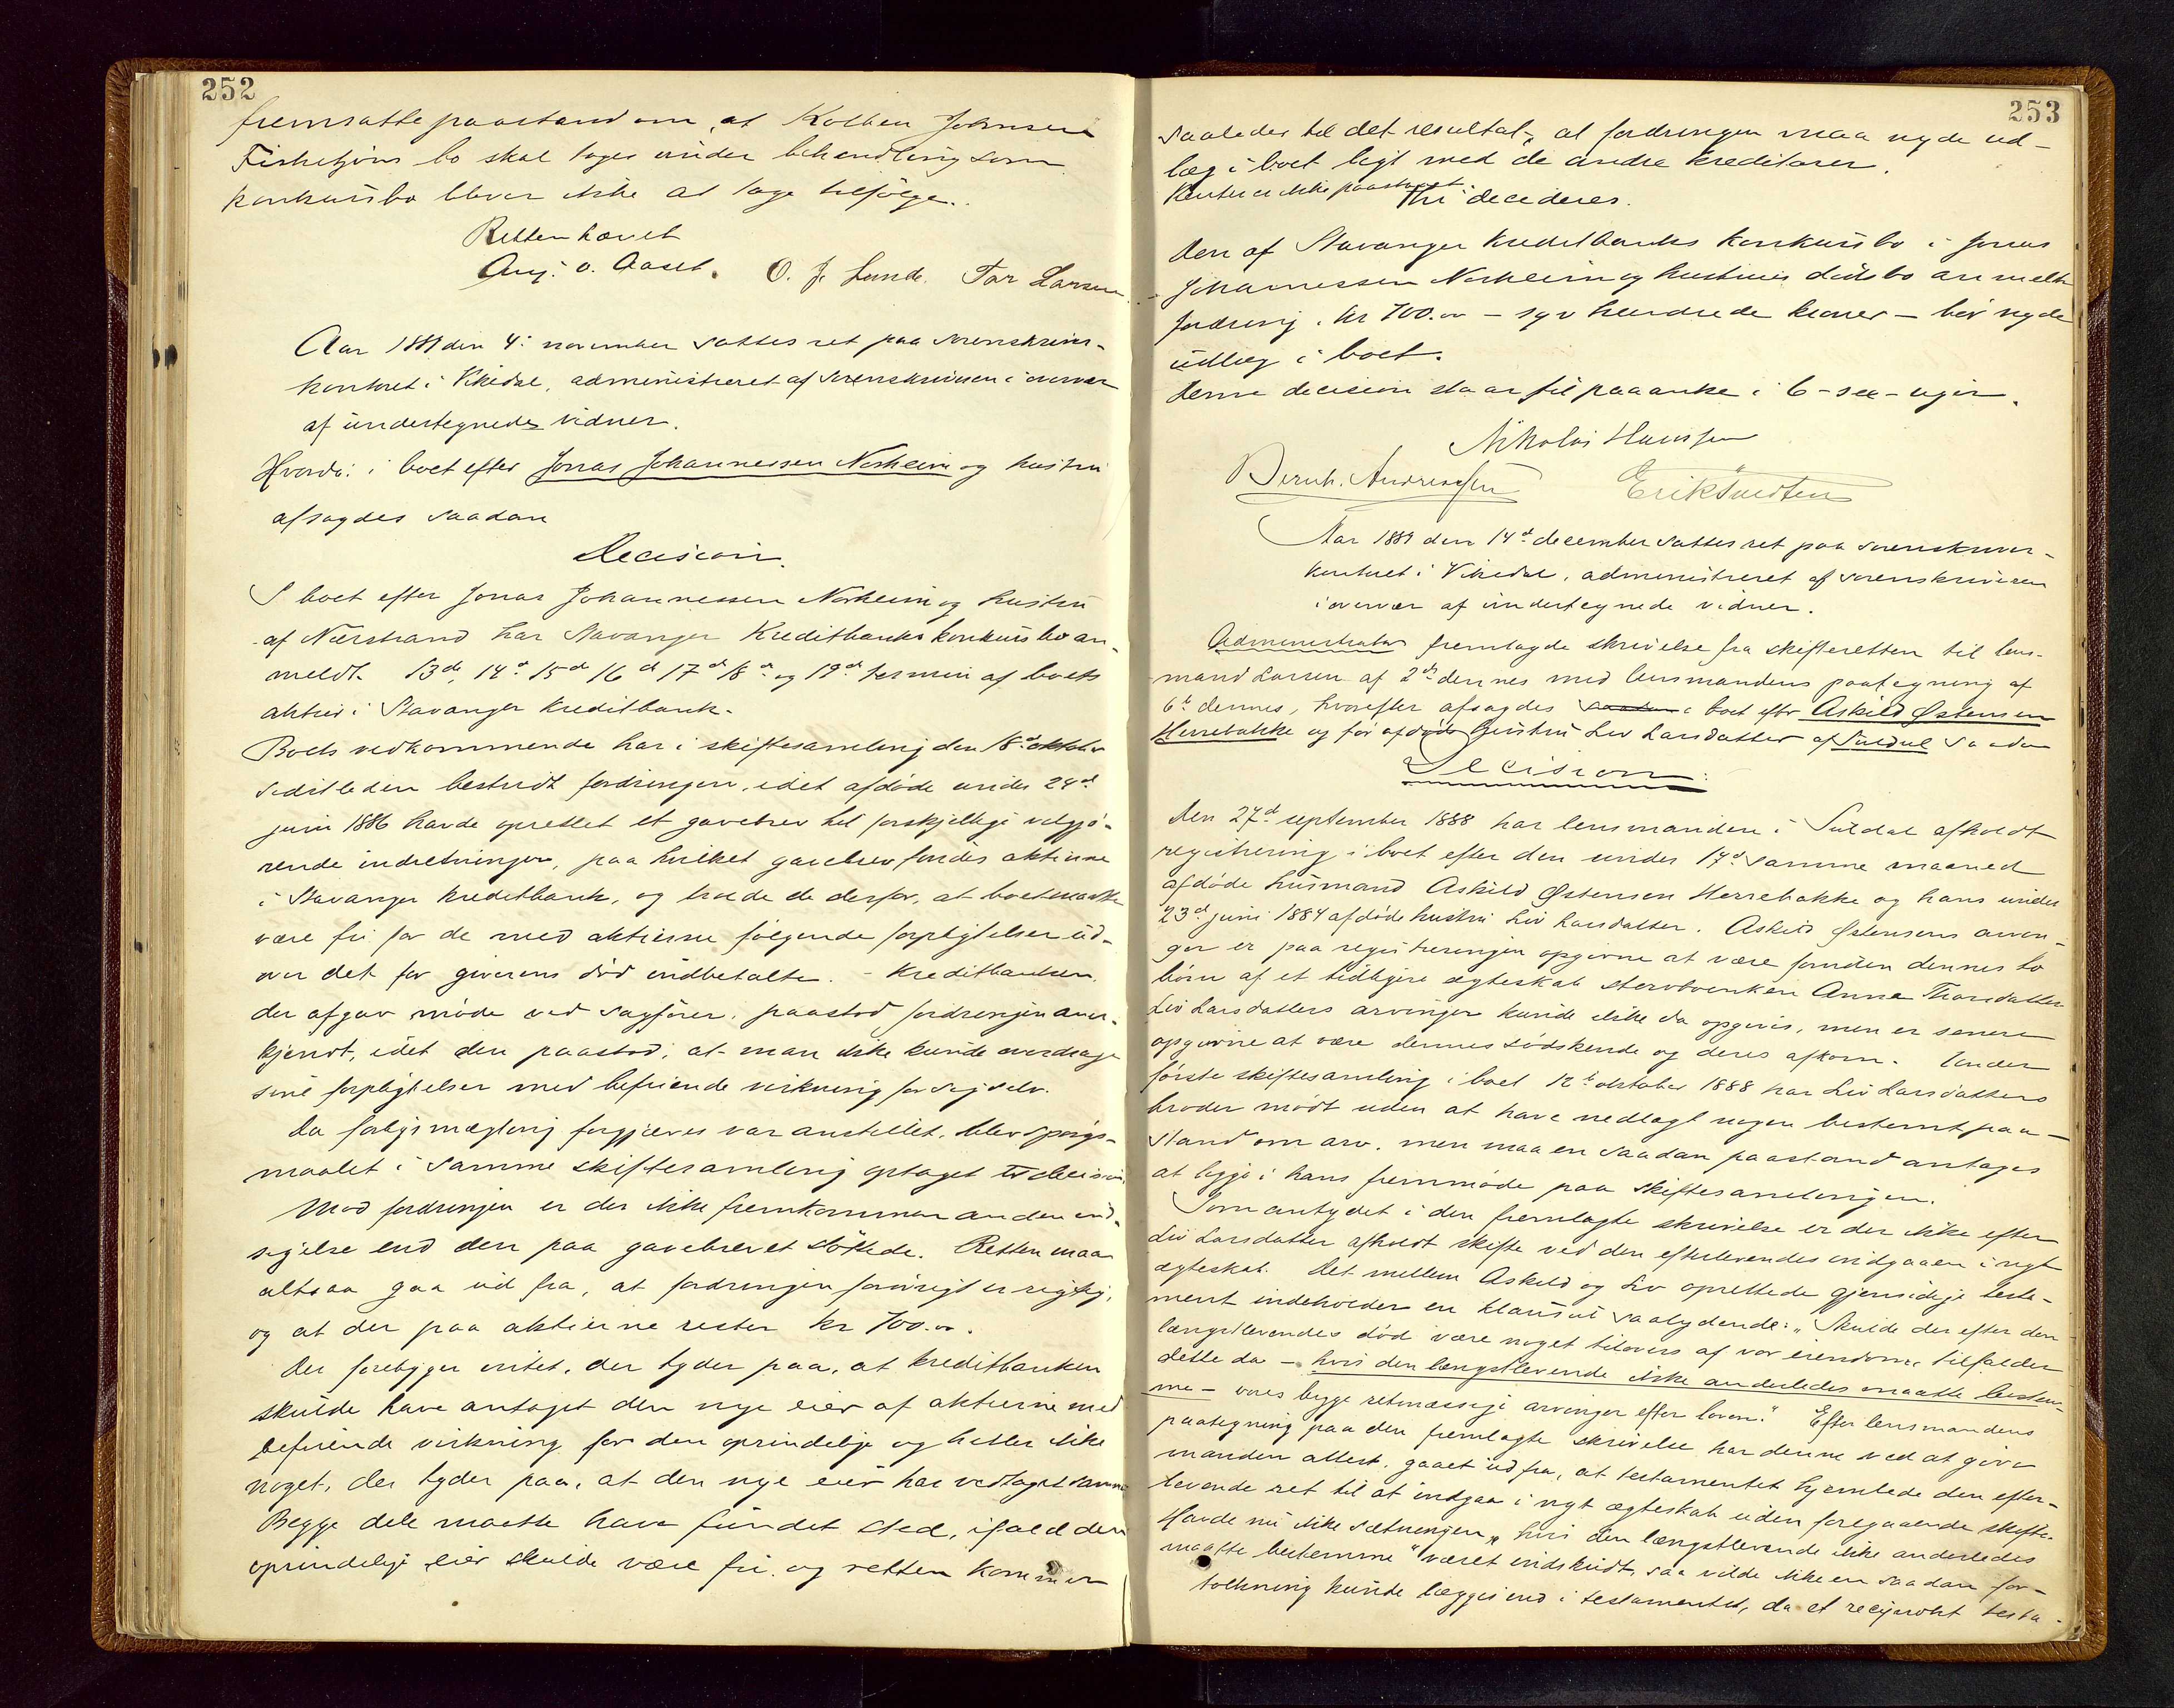 252
fremsatte paastand om, at Kolben Johnsen
Fisketjøns bo skal tages under behandling som
konkursbo bliver ikke at tage tilfølge.
Retten hævet
Aug. v. Aaset. O. J. Lunde. Tor Larsen
Aar 1889 den 4: november sattes ret paa sorenskriver-
kontoret i Vikedal, administreret af sorenskriveren i overvær
af undertegnede vidner.
Hvorda: i boet efter Jonas Johannessen Norheim og hustru
afsagdes saadan
Decision.
I boet efter Jonas Johannessen Norheim og hustru
af Nærstrand har Stavanger Kreditbanks konkursbo an-
meldt 13de, 14d 15de 16d 17d 18de og 19d termin af boets
aktier i Stavanger Kreditbank.
Boets vedkommende har i skiftesamling den 18d oktober
sidstleden bestridt fordringen, idet afdøde under 24d
juni 1886 havde oprettet et gavebrev til forskjellige velgjø-
rende indretninger, paa hvilket gavebrev fandtes aktierne
i Stavanger Kreditbank, og troede de derfor, at boet maatte
være fri for de med aktierne følgende forpligtelser ud-
over det for giverens død indbetalte. - Kreditbanken,
der afgav møde ved sagfører, paastod fordringen aner-
kjendt, idet den paastod, at man ikke kunde overdrage
sine forpligtelser med befriende virkning for sig selv.
Da forligsmægling forgjæves var anstillet, blev spørgs-
maalet i samme skiftesamling optaget til decision.
Mod fordringen er der ikke fremkommen anden ind-
sigelse end den paa gavebrevet støttede. Retten maa
altsaa gaa ud fra, at fordringen forøvrigt er rigtig,
og at der paa aktierne rester kr 700.00.
Der foreligger intet, der tyder paa, at kreditbanken
skulde have antaget den nye eier af aktierne med
befriende virkning for den oprindelige og heller ikke
noget, der tyder paa, at den nye eier har vedtaget samme
Begge dele maatte have fundet sted, ifald den
oprindelige eier skulde være fri. og retten kommer
253
saaledes til det resultat, at fordringen maa nyde ud-
læg i boet ligt med de andre kreditorer.
Renter er ikke paastaaet.
Thi decideres.
Den af Stavanger Kreditbanks konkursbo i Jonas
Johannessen Norheim og hustrues dødsbo anmeldte
fordring, kr 700.00 - syv hundrede kroner - bør nyde
udlæg i boet.
Denne decision staar til paaanke i 6 - sex - uger.
Nikolai Hanssen
Bernh. Andreassen Erik Tveiten
Aar 1889 den 14d december sattes ret paa sorenskriver-
kontoret i Vikedal, administreret af sorenskriveren
i overvær af undertegnede vidner.
Administrator fremlagde skrivelse fra skifteretten til lens-
mand Larsen af 2de dennes med lensmandens paategning af
6te dennes, hvorefter afsagdes saadan i boet efter Askild Østensen
Herrebakke og før afdøde hustru Liv Larsdatter af Suldal saadan
Decision:
Den 27d september 1888 har lensmanden i Suldal afholdt
registrering i boet efter den under 17d samme maaned
afdøde husmand Askild Østensen Herrebakke og hans under
23d juni 1884 afdøde hustru Liv Larsdatter. Askild Østensens arvin-
ger er paa registreringen opgivne at være foruden dennes to
børn af et tidligere ægteskab stervboenken Anna Thorsdatter
Liv Larsdatters arvinger kunde ikke da opgives, men er senere
opgivne at være dennes sødskende og deres afkom. Under
første skiftesamling i boet 12te oktober 1888 har Liv Larsdatters
broder mødt uden at have nedlagt nogen bestemt paa-
stand om arv, men maa en saadan paastand antages
at ligge i hans fremmøde paa skiftesamlingen.
Som antydet i den fremlagte skrivelse er der ikke efter
Liv Larsdatter afholdt skifte ved den efterlevendes indgaaen i nyt
ægteskab. Det mellem Askild og Liv oprettede gjensidige testa-
ment indeholder en klausul saalydende: "Skulde der efter den
længstlevendes død være noget tilovers af vor eiendom, tilfalder
dette da - hvis den længstlevende ikke anderledes maatte bestem-
me - vores begge retmæssige arvinger efter loven." Efter lensmandens
paategning paa den fremlagte skrivelse har denne ved at give
manden attest, gaaet ud fra, at testamentet hjemlede den efter-
levende ret til at indgaa i nyt ægteskab uden foregaaende skifte.
Havde nu ikke sætningen "hvis den længstlevende ikke anderledes
maatte bestemme" været indskudt, saa vilde ikke en saadan for-
tolkning kunde lægges ind i testamentet, da et reciprokt testa-